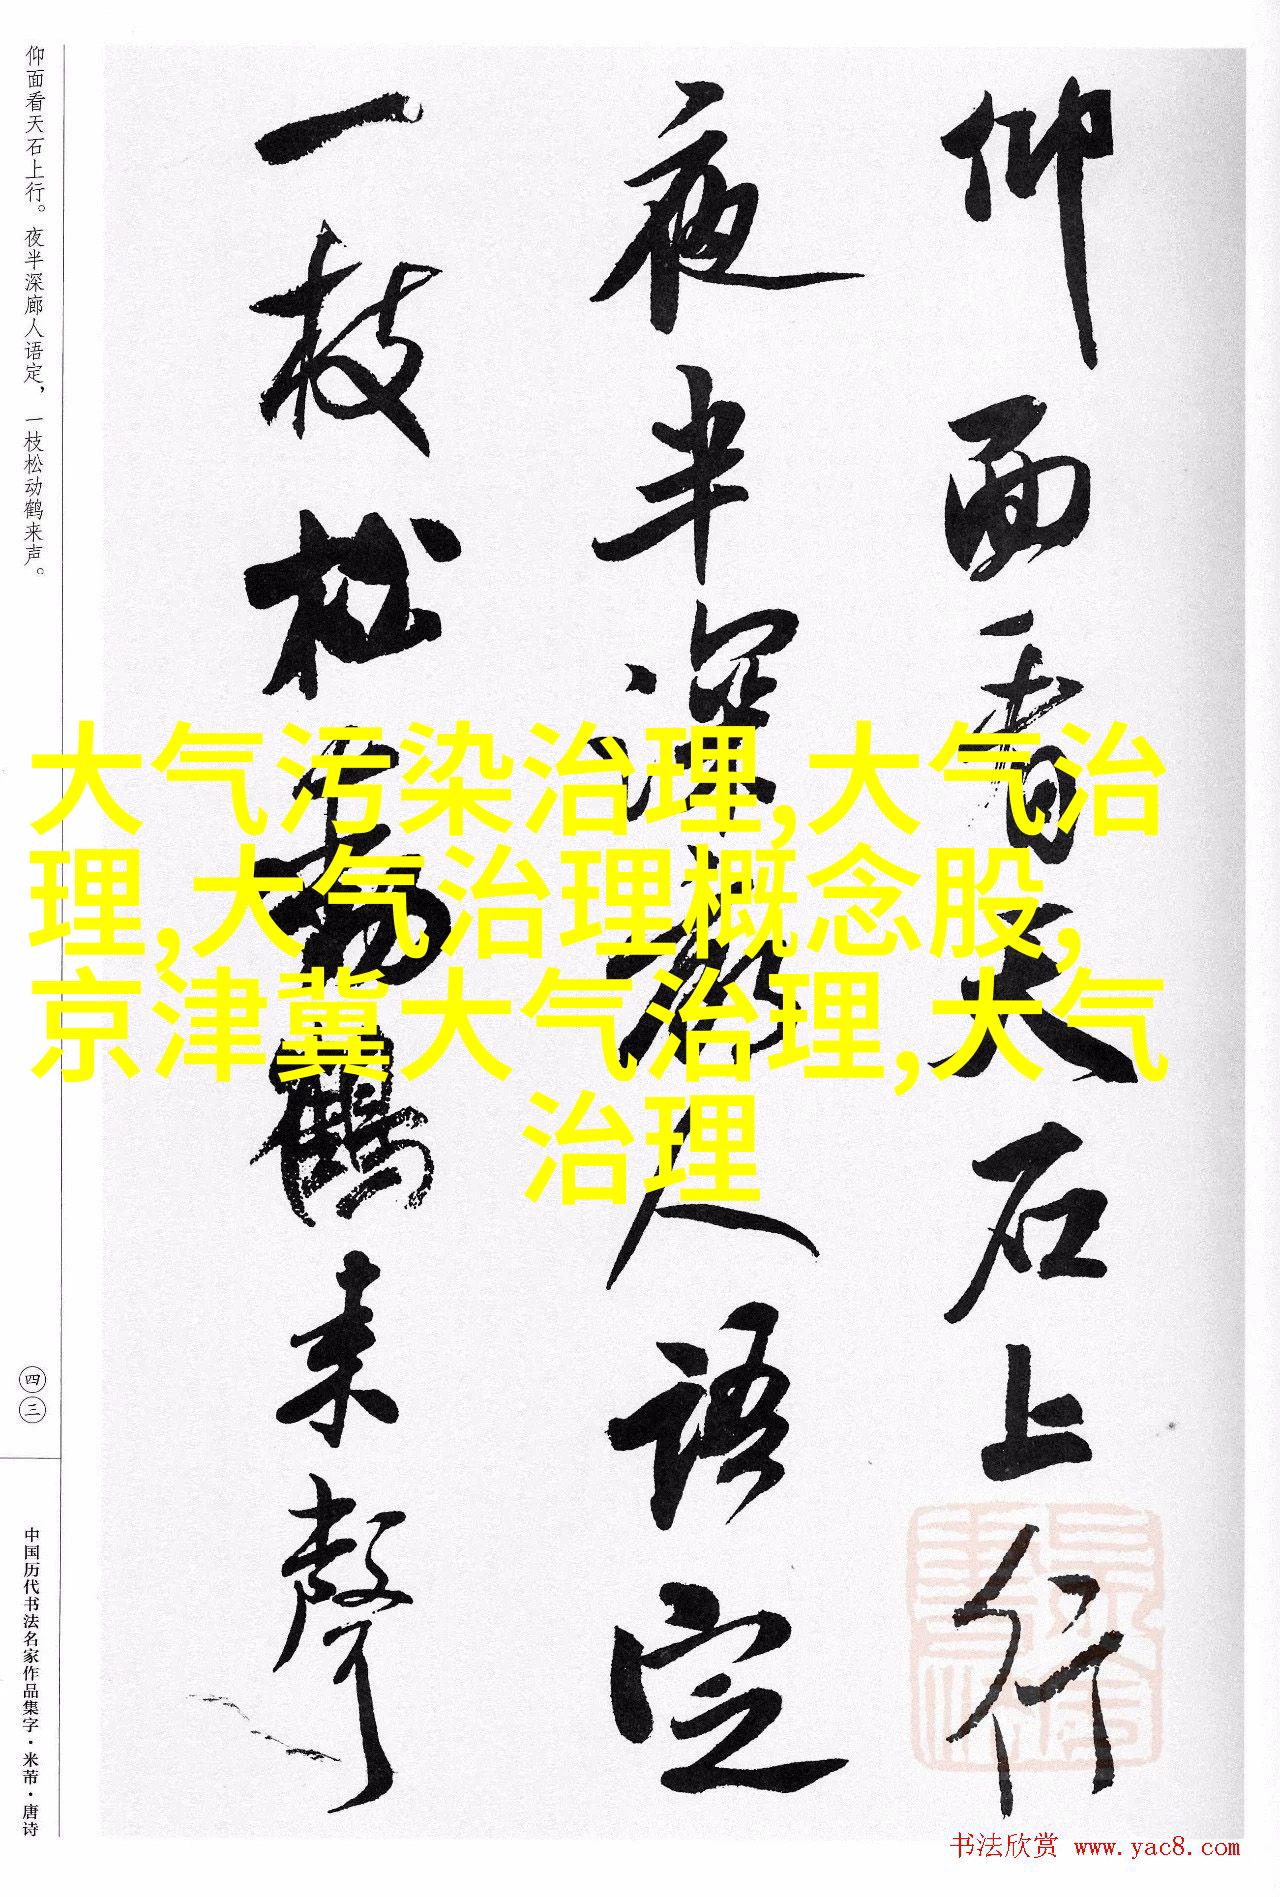 仰面看天石上行
夜半深廊人语定
一枝松动鹤来声
仰面看天石上行。夜半深廊人语定，一枝松动鹤来声。
四三
中国历代书法名家作品集字·米芾·唐诗
大气污染治理,大气治
理,大气治理概念股,
京津冀大气治理,大气
治理
书法欣赏 www.yac8.com